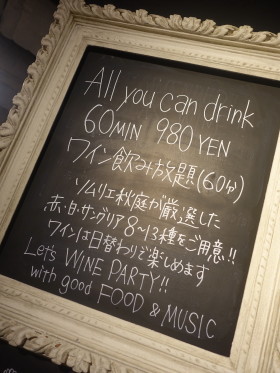 All you can drink
60MIN 980 YEN
ワイン飲み放題(60分)
ソムリエ秋庭が厳選した
赤・白・サングリア8〜13種をご用意!!
ワインは日替わりで楽しめます
Let's WINE PARTY!!
with good FOOD & MUSIC